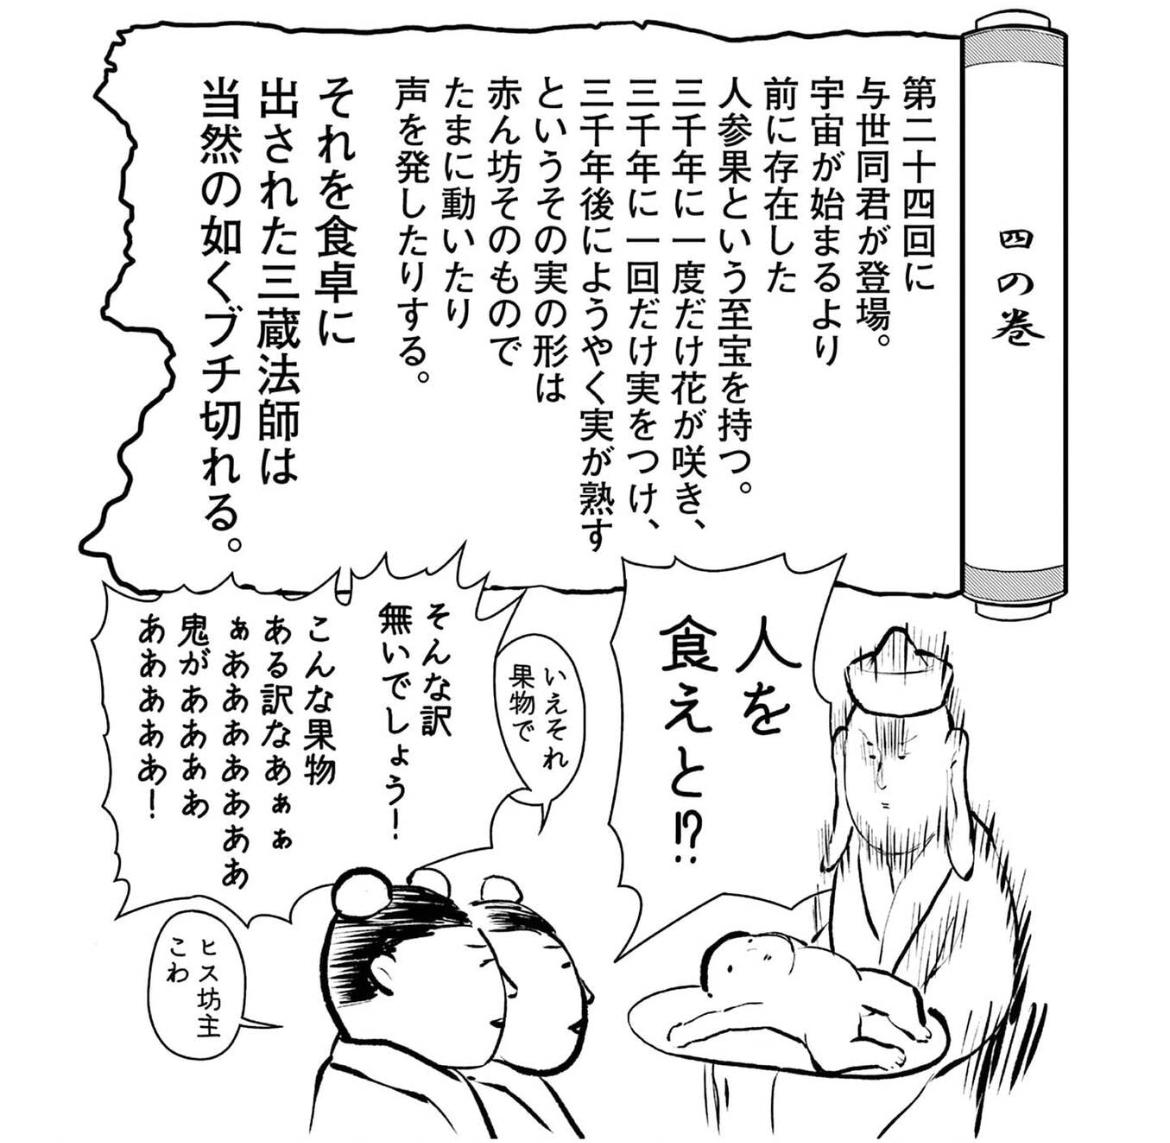 四の巻
第二十四回に
与世同君が登場。
宇宙が始まるより
前に存在した
人参果という至宝を持つ。
三千年に一度だけ花が咲き、
三千年に一回だけ実をつけ、
三千年後にようやく実が熟す
というその実の形は
赤ん坊そのもので
たまに動いたり
声を発したりする。
それを食卓に
出された三蔵法師は
当然の如くブチ切れる。
人を
食えと!?
いえそれ
果物で
そんな訳
無いでしょう!
こんな果物
ある訳なあぁぁ
ぁああああああ
鬼がああああ
ああああああ!
ヒス坊主
こわ